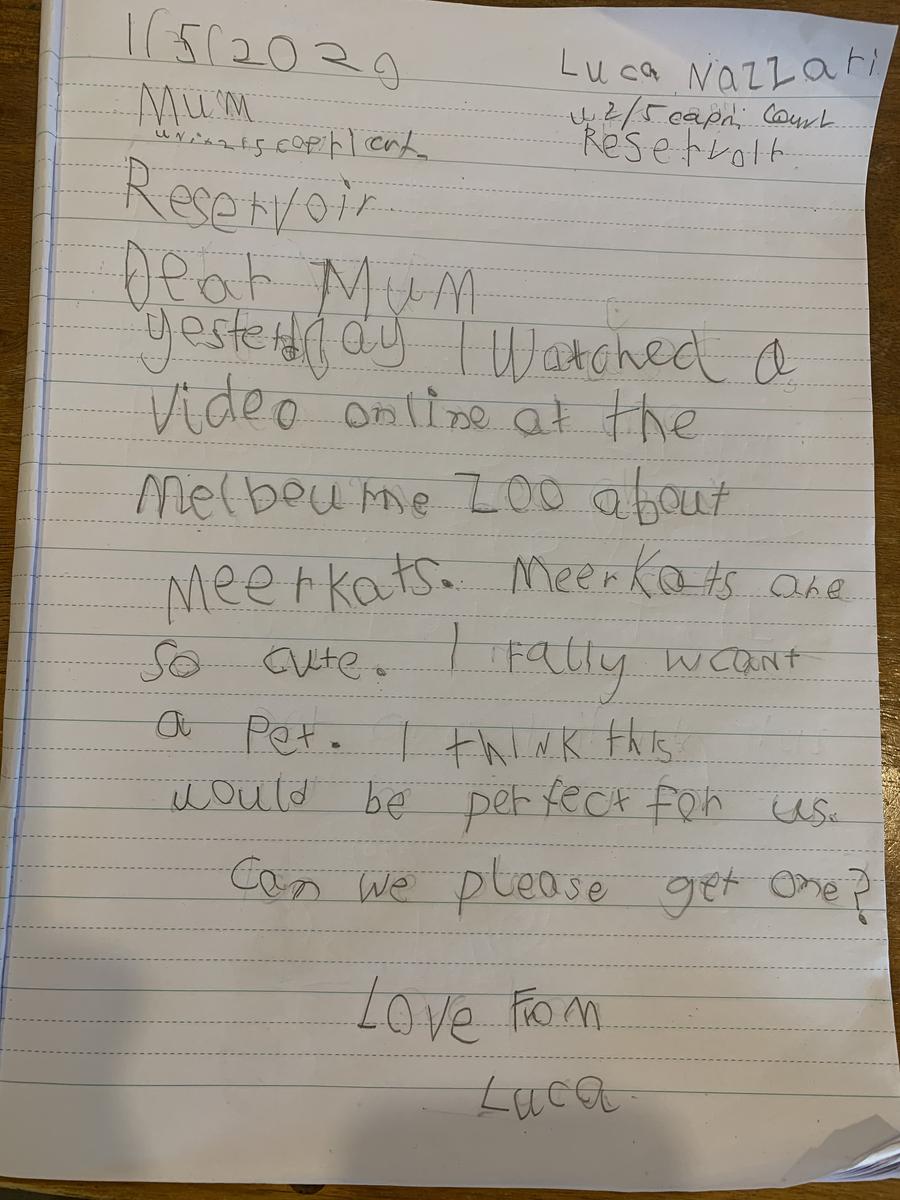 1/5/2020
Luca Nazzari
Mum
u2/5 capri Court
Reservoir
Reservoir
Dear Mum
yesterday I Watched a
Video online at the
Melbourne Zoo about
Meerkats. Meerkats are
so cute. I rally want
a Pet. I think this
would be perfect for us.
Can we please get one?
Love From
Luca